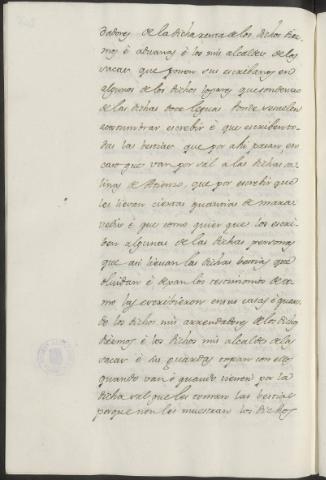 dadores de la dicha renta de los dichos diez-
mos é aduanas é los mis alcaldes de las
sacas que ponen sus escribanos en
algunos de los dichos logares que son dentro
de las dichas doce leguas donde suelen
acostumbrar escrebir é que escriben to-
das las bestias que por ahi pasan, en
caso que van por sal á las dichas sa-
linas de Atienza, que por escrebir que
les lievan ciertas quantias de marave-
dis é que como quier que los escri-
ben algunas de las dichas personas
que asi lievan las dichas bestias que
olvidan é dejan los testimonios de co-
mo las escribieron en sus casas é quan-
do los dichos mis arrendadores de los dichos
diezmos é los dichos mis alcaldes de las
sacas é sus guardas topan con ellos
quando van é quando vienen por la
dicha sal que les toman las bestias
porque non les muestran los dichos